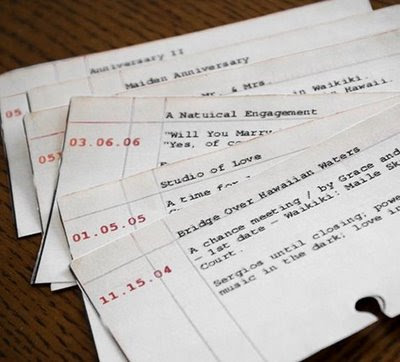 Anniversary II
Maiden Anniversary
05
Mr. & Mrs.
in Waikiki.
in Hawaii.
05
A Natuical Engagement
03.06.06
"Will You Marry
"Yes, of co
Studio of Love
A time for
01.05.05
Bridge Over Hawaiian Waters
11.15.04
A chance meeting / by Grace and
- 1st date - Waikiki: Maile Sk
Court.
Sergios until closing; powe
music in the dark; love in